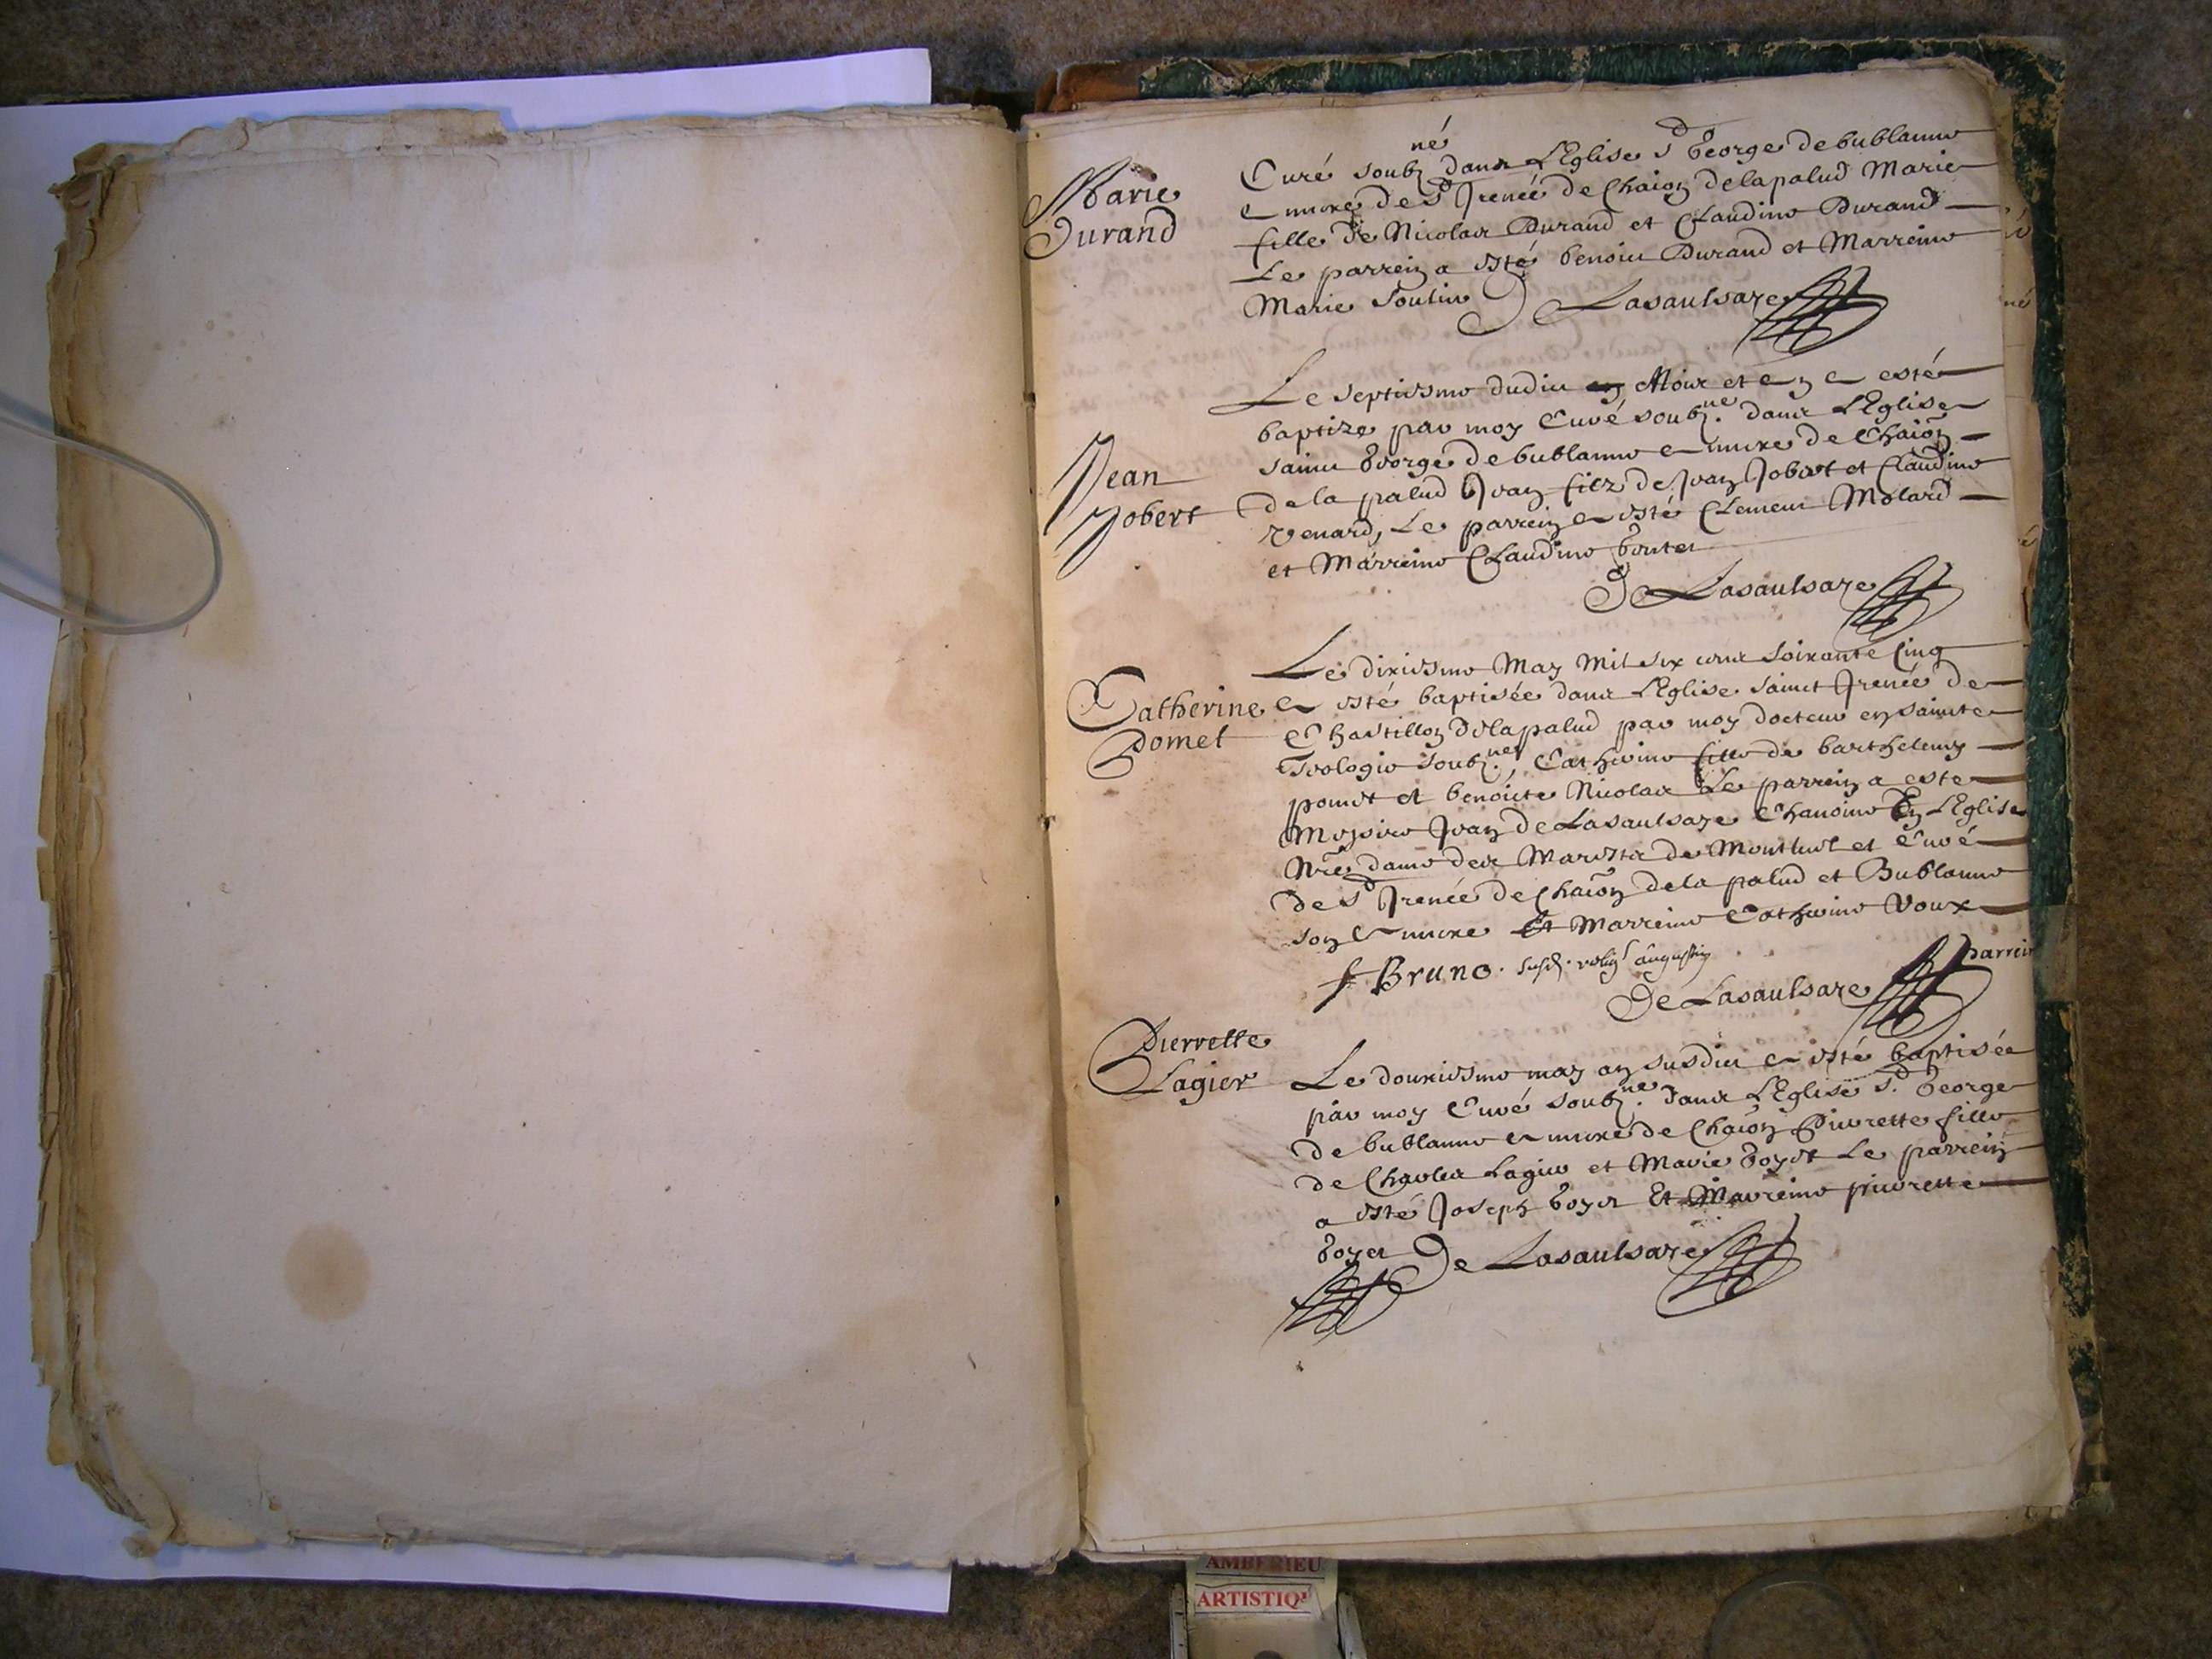 Marie
Durand
né
Curé soubz dans L'Eglise St George de bublanne
annexe de St Irenée de Chaion de la palud Marie
fille de Nicolas Durand et Claudine Durand
Le parrein a esté benoict Durand et Marreine
Marie De Lasaulsaye
Jean
Jobert
Le septiesme dudict Mois et an a esté
baptize par moy Curé soubz.né dans L'Eglise
sainct George de bublanne annexe de Chaion
de la palud Jean filz de Jean Jobert et Claudine
venard, Le parrein a esté Clement Molard
et Marreine Claudine
De Lasaulsaye
Catherine
Pomet
Le dixiesme May Mil six cens soixante Cinq
a esté baptisée dans L'Eglise sainct Irenée de
Chastillon de la palud par moy docteur en saincte
Teologie soubz.né, Catherine fille de barthelemy
pomet et benoicte Nicolas Le parrein a esté
Messire Jean de Lasaulsaye Chanoine En L'Eglise
Nre dame des Marestz de Montluel et Curé
de St Irenée de Chaion de la palud et Bublanne
son annexe Et Marreine Catherine Voux
f Bruno. relig augustin
parrein
De Lasaulsaye
Pierrette
Lagier
Le douxiesme may an susdict a esté baptisée
par moy Curé soubz.né dans L'Eglise St George
de bublanne annexe de Chaion Pierrette fille
de Charles Lagier et Marie Goyet Le parrein
a esté Joseph Goyet Et Marreine pierrette
Goyet De Lasaulsaye
AMBERIEU
ARTISTIQ